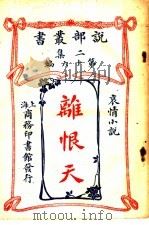 說部叢書
二集
編
哀情小說
離恨天
上海
商務印書館發行